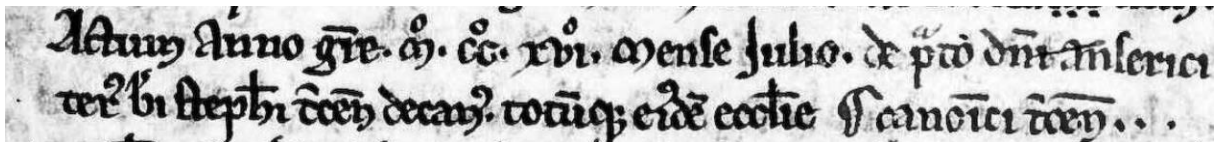 Actum Anno gr̄e. m̊. cc̊. xvı̊. mense Julio. de p̄to dn̄i anserici
bı̄ steph̄i t̄cen̄ decan᷒. totūq; eı᷒dē eccl̄ie ¶ canoı̄ci t̄cen̄...